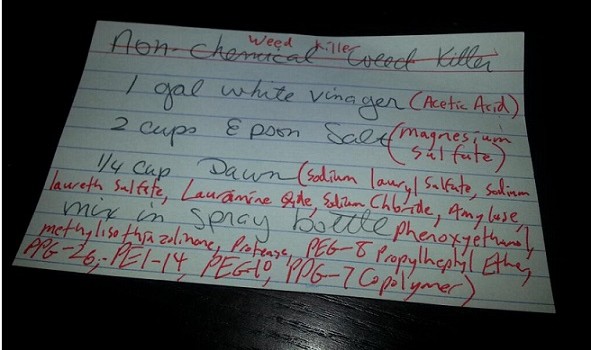 weed killer
Non-Chemical Weed Killer
1 gal white vinager (Acetic Acid)
2 cups Epson Salt (magnesium sulfate)
1/4 cup Dawn (sodium lauryl sulfate, sodium
laureth sulfate, Lauramine Oxide, Sodium Chloride, Amylase,
mix in spray bottle phenoxyethanol,
methylisothiazolinone, Protease, PEG-8 Propylheptyl Ether,
PPG-26, PEI-14, PEG10, PPG-7 Copolymer)